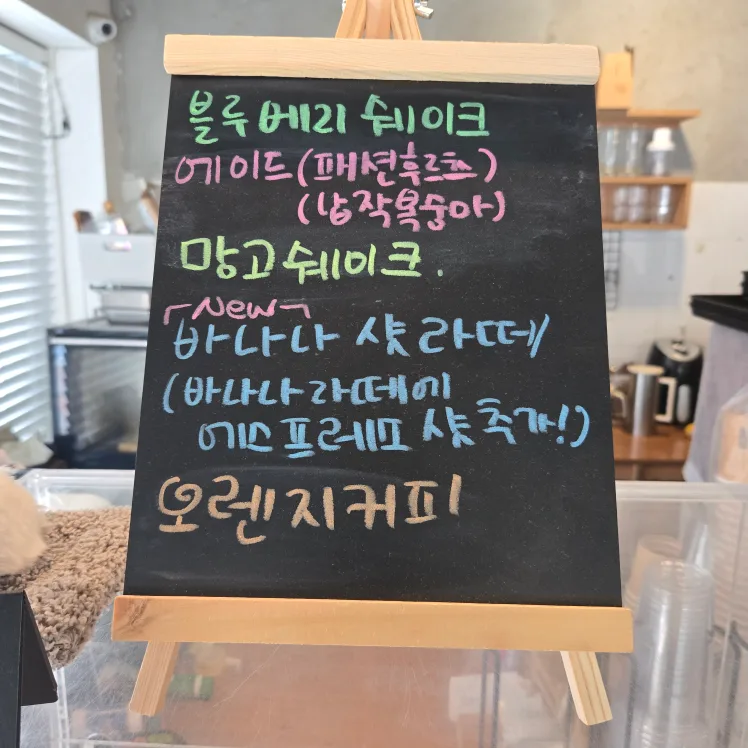 블루베리 쉐이크
에이드(패션후르츠)
(납작복숭아)
망고쉐이크.
「New」
바나나 샷 라떼
(바나나라떼에
에스프레소 샷 추가!)
오렌지커피